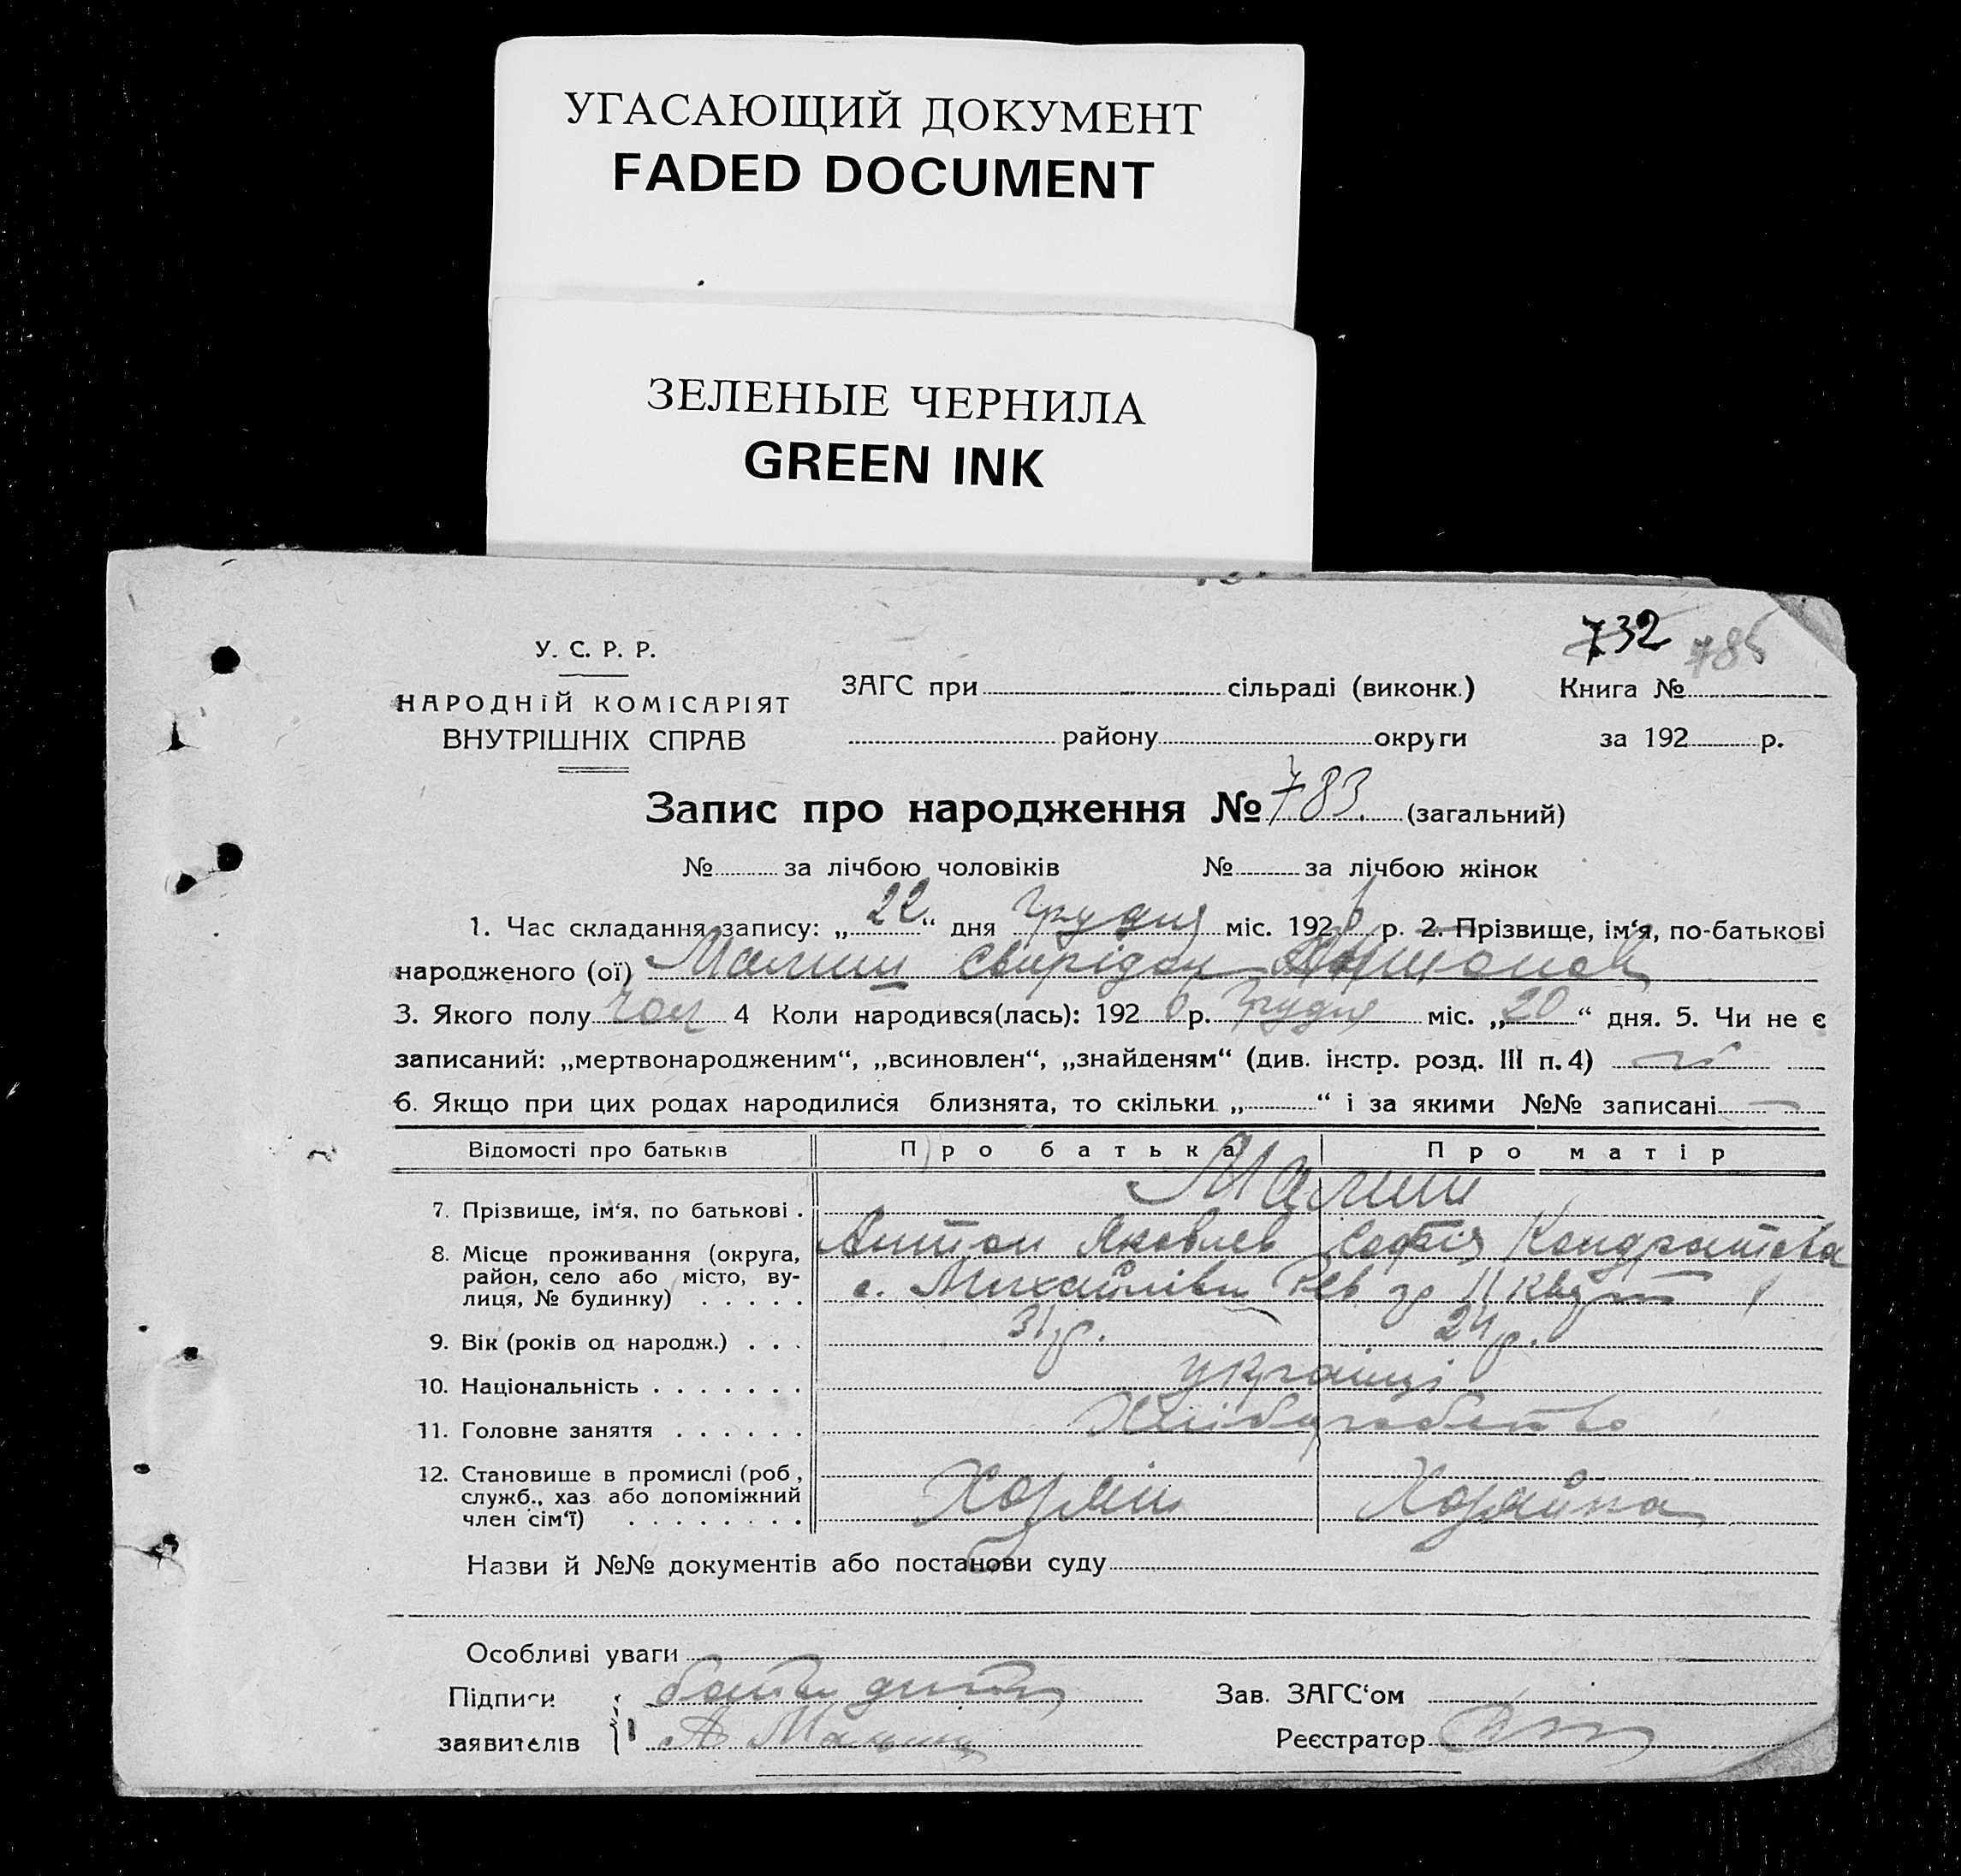 УГАСАЮЩИЙ ДОКУМЕНТ
FADED DOCUMENT
ЗЕЛЕНЫЕ ЧЕРНИЛА
GREEN INK
732 785
У. С. Р. Р.
НАРОДНІЙ КОМІСАРІЯТ
ВНУТРІШНІХ СПРАВ
ЗАГС при сільраді (виконк.) Книга №
району округи за 192 р.
Запис про народження № 783. (загальний)
№ за лічбою чоловіків № за лічбою жінок
1. Час складання запису: „22“ дня Грудня міс. 1926 р. 2. Прізвище, ім‘я, по-батькові
народженого (ої) Малиш Свирідон Антонов
3. Якого полу чол 4 Коли народився(лась): 1926 р. Грудня міс. „20“ дня. 5. Чи не є
записаний: „мертвонародженим“, „всиновлен“, „знайденям“ (див. інстр. розд. III п. 4) ні
6. Якщо при цих родах народилися близнята, то скільки „ “ і за якими №№ записані —
Відомості про батьків Про батька Про матір
7. Прізвище, ім‘я, по батькові . Малиш
Антон Яковлев Софія Кондратова
8. Місце проживання (округа, район, село або місто, вулиця, № будинку) . . . . . с. Михайлівки
9. Вік (років од народж.) . . . 31 р. 24 р.
10. Національність . . . . . . . українці
11. Головне заняття . . . . . . Хліборобство
12. Становище в промислі (роб, служб., хаз або допоміжний член сім‘ї) . . . . . . . . Хозяїн Хозяйка
Назви й №№ документів або постанови суду
Особливі уваги
Підписи батько дитини Зав. ЗАГС‘ом
заявителів А Малиш Реєстратор